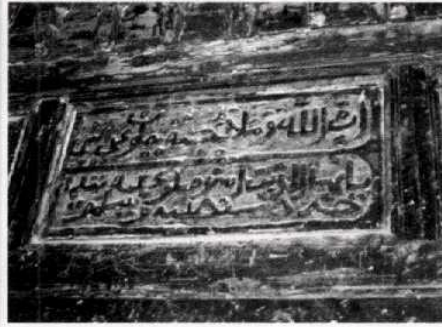 ان الله وملائكته يصلون على النبى
يا ايها الذين امنوا صلوا عليه وسلموا